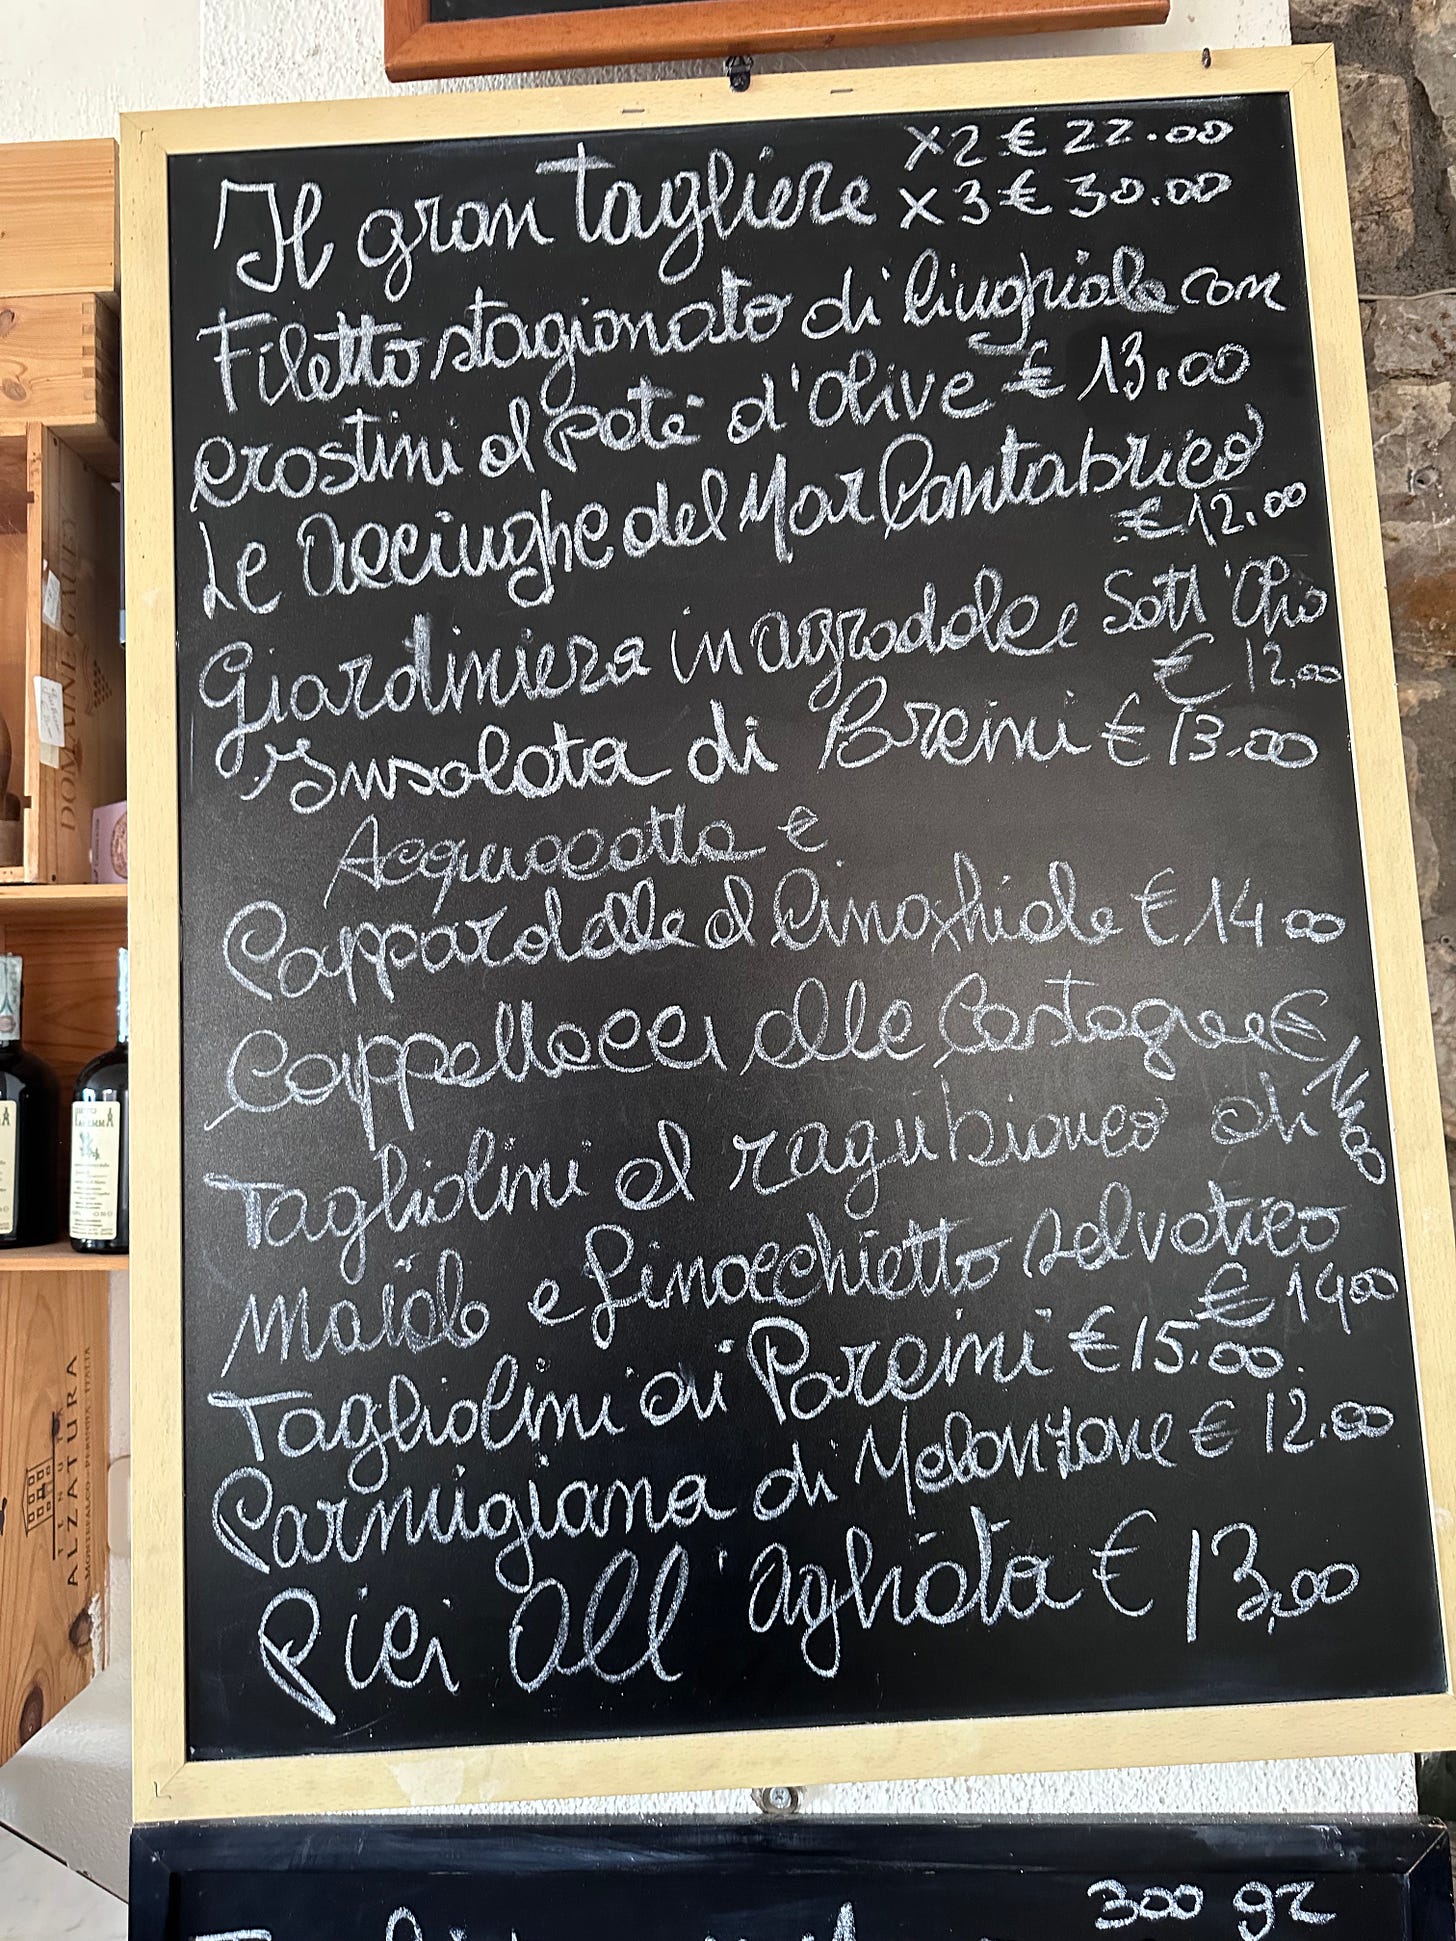 Il gran Tagliere x2 € 22.00
x3 € 30.00
Filetto stagionato di Cinghiale con
crostini al Patè d'Olive € 13.00
Le Acciughe del Mar Cantabrico
€ 12.00
Giardiniera in agrodolce Sott'Olio
€ 12,00
Insalata di Porcini € 13.00
Acquacotta €
Pappardelle al Cinghiale € 14 00
Cappellacci alle Castagne €
Tagliolini al ragù bianco di
Maiale e finocchietto selvatico
€ 14 00
Tagliolini ai Porcini € 15.00.
Parmigiana di Melanzane € 12.00
Pici All'agliata € 13,00
300 gr
DOMAINE GALY
MAREMMA
TENUTA
ALZATURA
MONTEFALCO - PERUGIA ITALIA